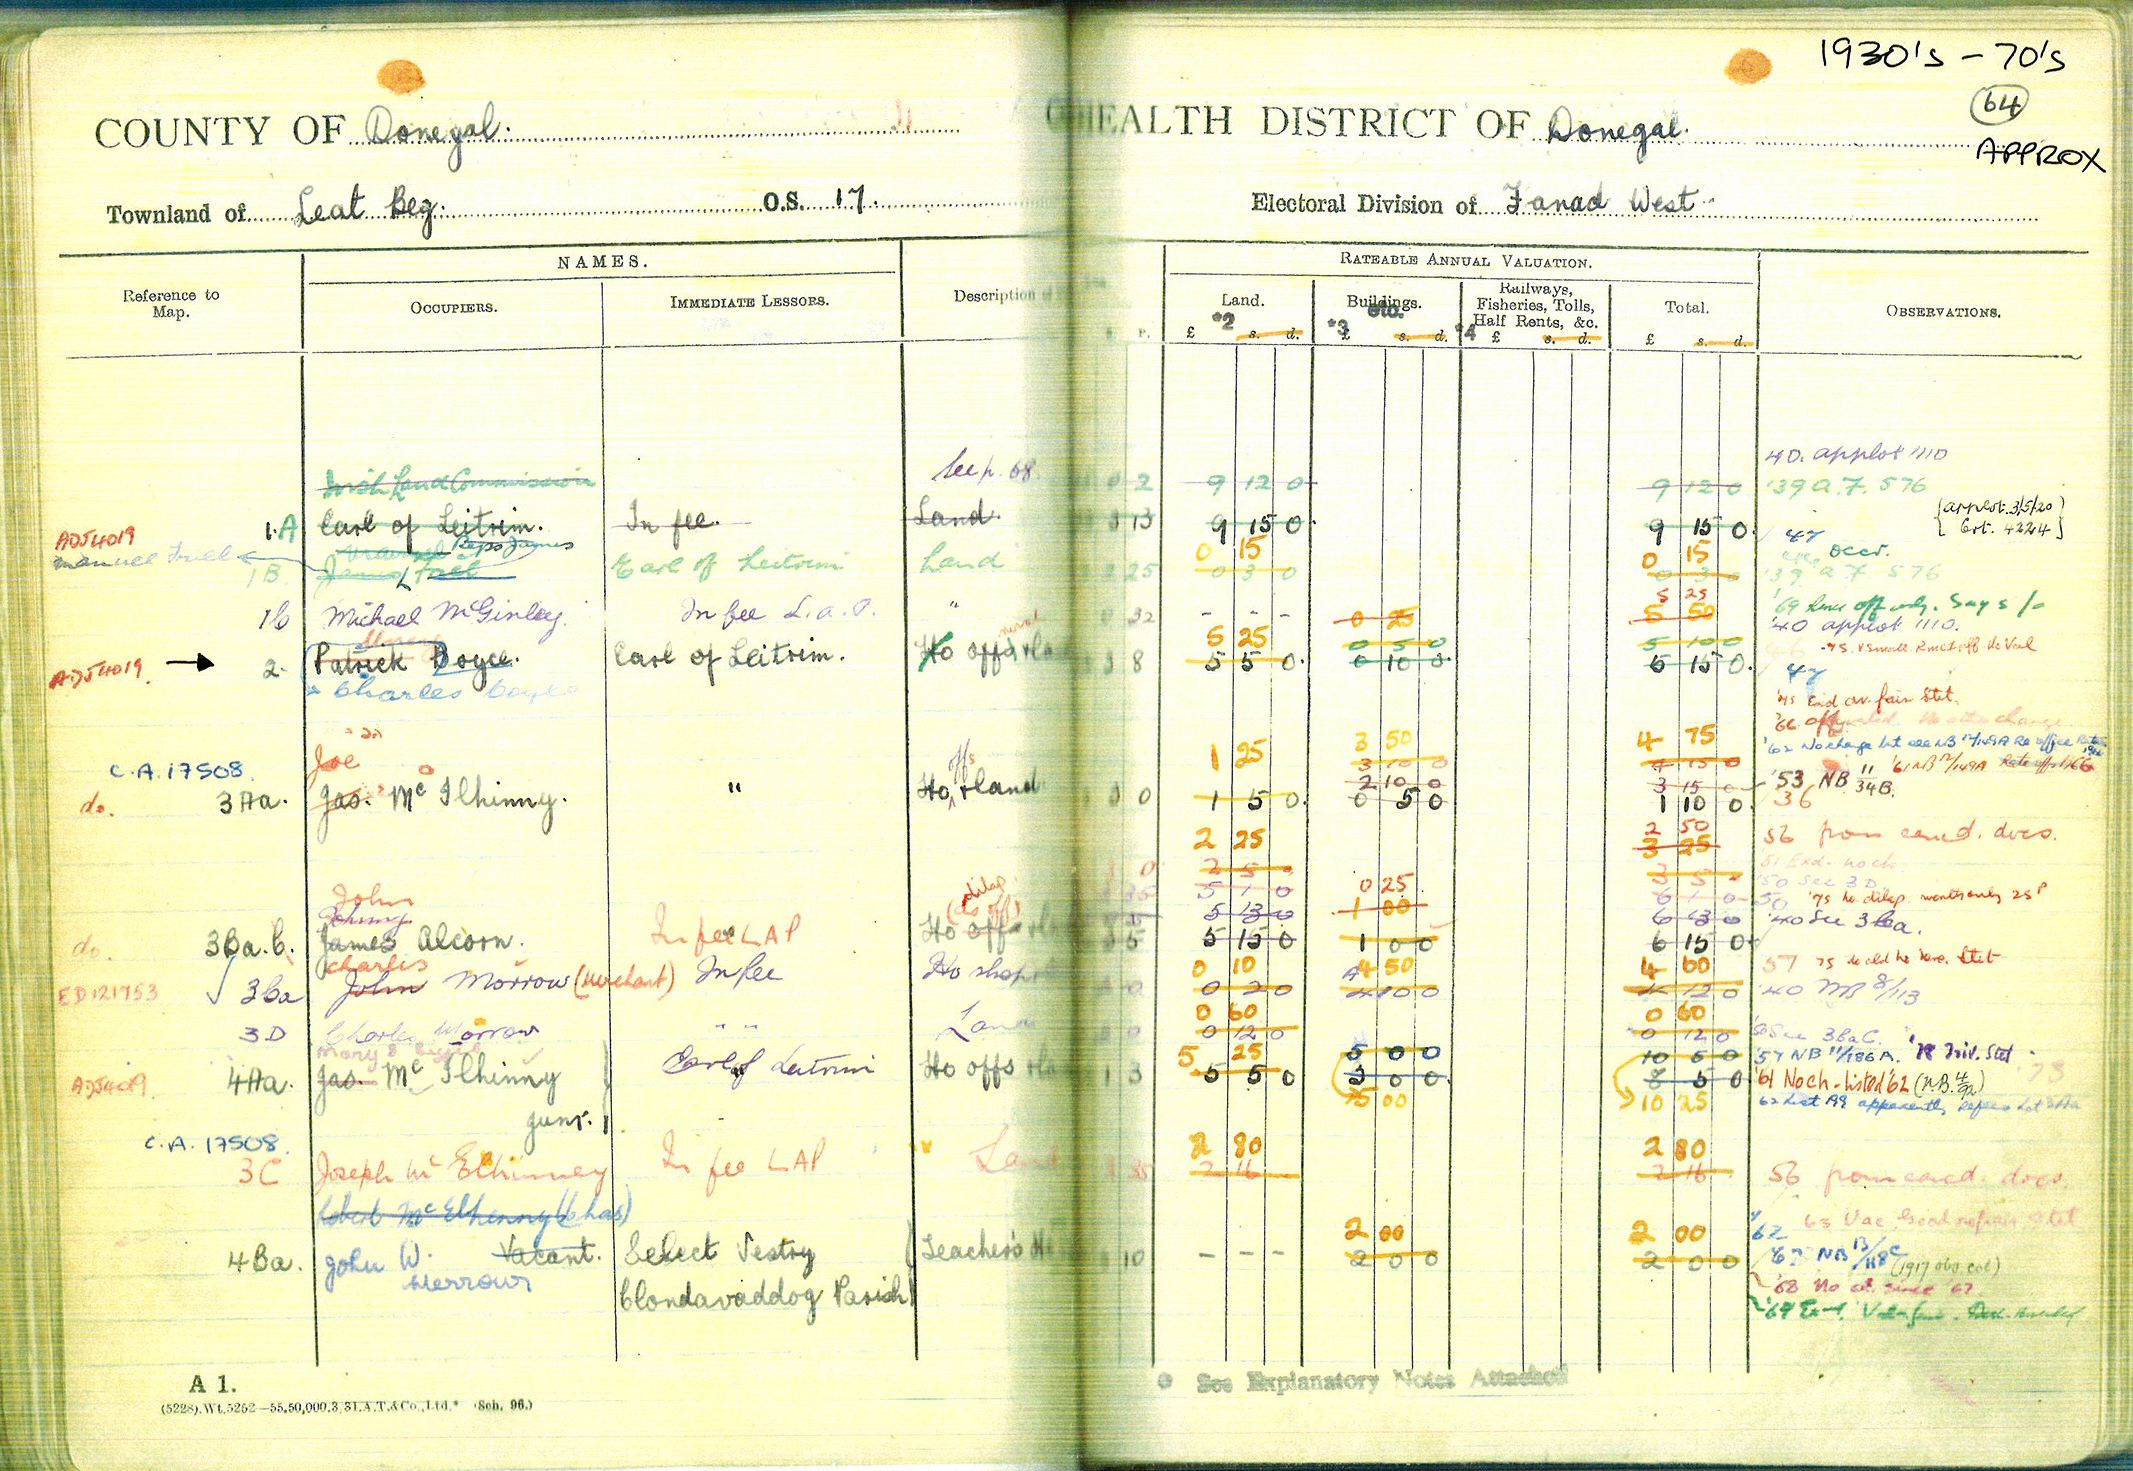 1930's - 70's
64
APPROX
COUNTY OF Donegal.
HEALTH DISTRICT OF Donegal.
Townland of Leat Beg. O.S. 17.
Electoral Division of Fanad West
Reference to Map.
NAMES.
OCCUPIERS.
IMMEDIATE LESSORS.
Description
RATEABLE ANNUAL VALUATION.
Land.
Buildings. etc.
Railways, Fisheries, Tolls, Half Rents, &c.
Total.
OBSERVATIONS.
*2 *3 *4
£ s. d. £ s. d. £ s. d. £ s. d.
See p. 68. 40. applot 1110
Irish Land Commission 0 2 9 12 0 9 12 0 '39 a.F. 576
1.A Earl of Leitrim. In fee. Land. 13 9 15 0 9 15 0 (applot. 3/5/20
ADJ4019 Cert. 4224)
Reps James 0 15 0 15 47 occr.
Manuel Friel 1B. James Friel Earl of Leitrim Land 25 0 3 0 0 3 0 '39 a.F. 576
5 25
1C Michael McGinley. In fee L.A.P. " 32 - - - 0 25 5 50 '69
5 25 0 5 0 5 10 0 '40 applot 1110.
ADJ4019 2. Patrick Boyce. Earl of Leitrim. Ho offs 8 5 5 0 0 10 0 6 15 0 47
Charles Boyce
'75 Exd av. fair Stet.
'66
Joe offs 1 25 3 50 4 75 '62 No change
C.A. 17508. 3 10 0 4 15 0 '61 NB 12/149A
2 10 0 3 15 0 '53 NB 11/34B.
do. 3Aa. Jas. McIlhinny. " Ho, land 0 0 1 5 0 0 5 0 1 10 0 36
2 25 2 50 56 from cancd. docs.
3 25
2 5 3 5 '51 Exd. no ch
John dilap. 5 1 0 0 25 6 1 0 50 See 3D
Johnny 5 13 0 1 00 6 13 0 '40 See 3Ca.
do. 3Ba.b. James Alcorn. In fee LAP Ho offs 5 5 15 0 1 0 0 6 15 0
Charles 0 10 4 50 4 60 57
ED121753 3Ca John Morrow (Merchant) In fee Ho shop 0 0 2 0 4 10 0 4 12 0 '40 NB 8/113
0 60 0 60
3D Charles Morrow " " Land 0 0 12 0 0 12 0 '50 See 3BaC.
Mary & 5 25 5 0 0 10 5 0 '57 NB 11/186A.
ADJ4019. 4Aa. Jas. McIlhinny Earl of Leitrim Ho offs 1 3 5 5 0 3 0 0 8 5 0 '61 No ch - listed '62 (N.B. 4/92)
junr. 5 00 10 25
C.A. 17508. 2 80 2 80
3C Joseph McElhinney In fee LAP Land 35 2 16 2 16 56 from cancd. docs.
Robert McElhenny (Chas)
2 00 2 00 '62 63 Vac Good repair Stet
4Ba. John W. Morrow Vacant. Select Vestry Teacher's Ho 10 - - - 2 0 0 2 0 0 '62 NB 13/118C (1917 obs. col)
Clondavaddog Parish '68 No ch. since '62
'69
* See Explanatory Notes Attached
A 1.
(5228).Wt.5252—55,50,000.3,31.A.T.&Co.,Ltd.* (Sch. 96.)